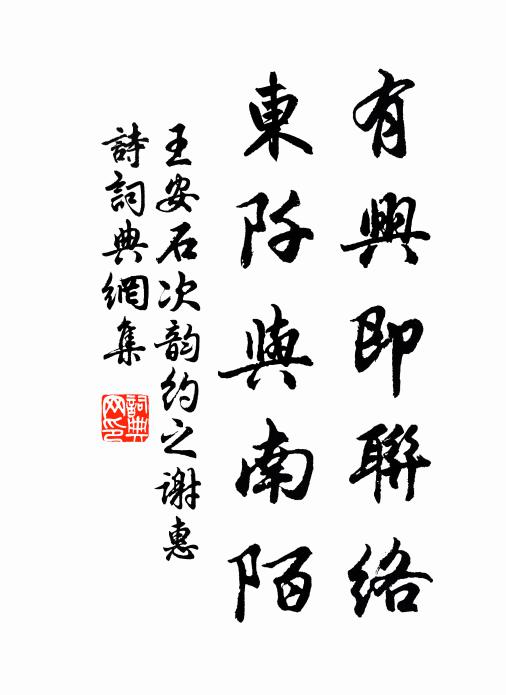 有興即聯絡
東阡與南陌
王安石次韵約之謝惠
詩詞典網集
詞典网印